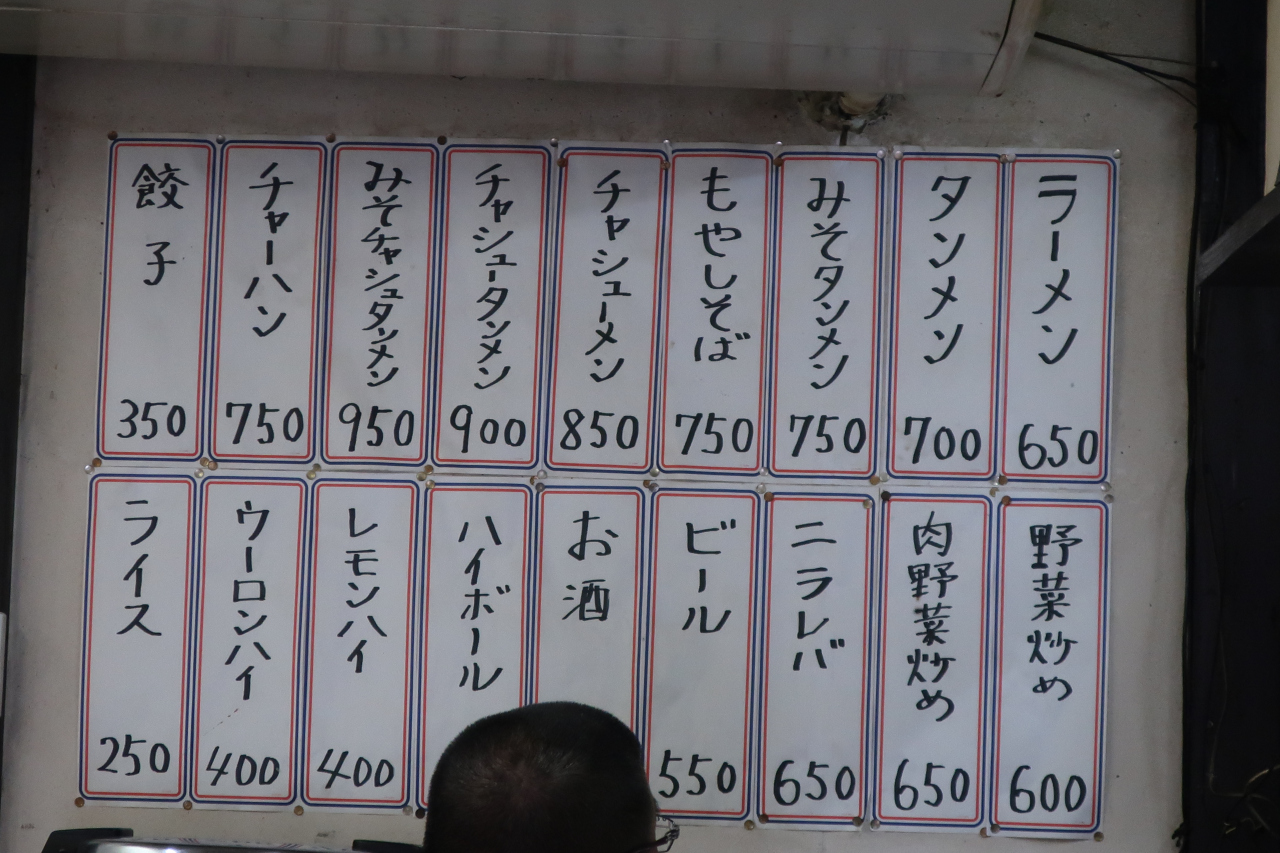 ラーメン 650
タンメン 700
みそタンメン 750
もやしそば 750
チャシューメン 850
チャシュータンメン 900
みそチャシュタンメン 950
チャーハン 750
餃子 350
野菜炒め 600
肉野菜炒め 650
ニラレバ 650
ビール 550
お酒
ハイボール
レモンハイ 400
ウーロンハイ 400
ライス 250